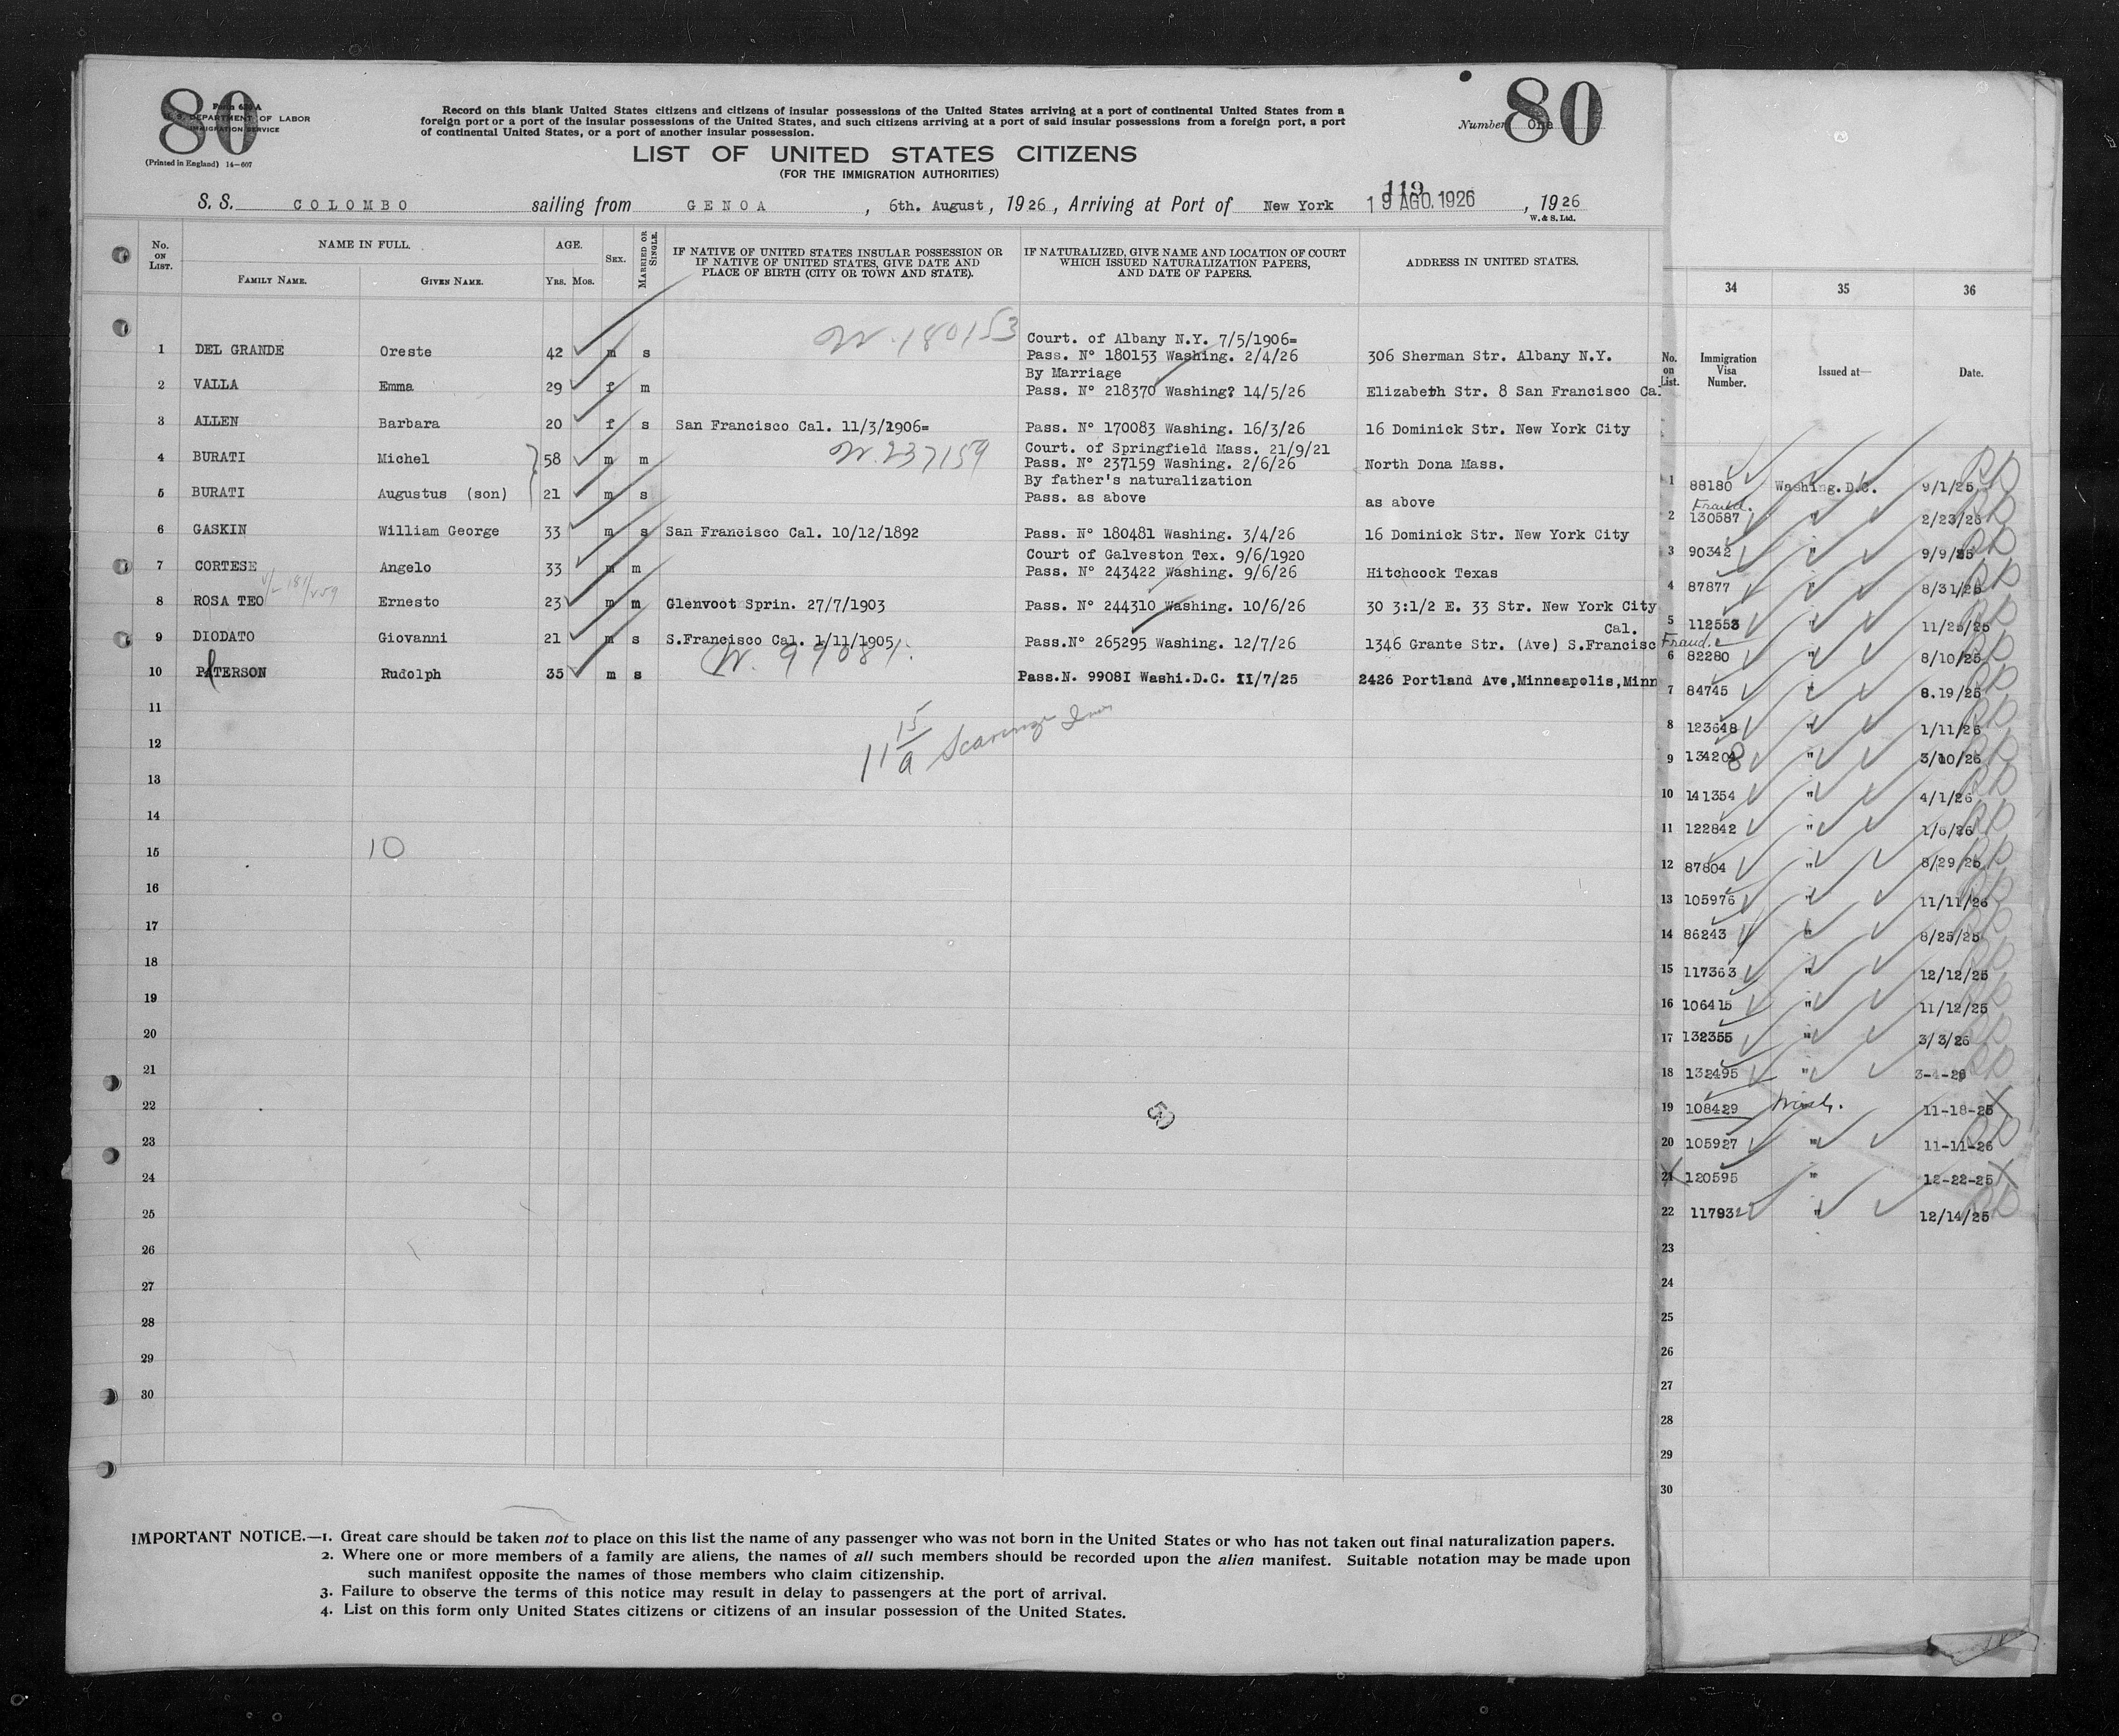 80
80
Form 630 A
U. S. DEPARTMENT OF LABOR
IMMIGRATION SERVICE
(Printed in England) 14—607
Record on this blank United States citizens and citizens of insular possessions of the United States arriving at a port of continental United States from a
foreign port or a port of the insular possessions of the United States, and such citizens arriving at a port of said insular possessions from a foreign port, a port
of continental United States, or a port of another insular possession.
Number One
LIST OF UNITED STATES CITIZENS
(FOR THE IMMIGRATION AUTHORITIES)
119
S. S. COLOMBO sailing from GENOA, 6th. August, 1926, Arriving at Port of New York 19 AGO. 1926, 1926
W. & S. Ltd.
No. ON LIST.
NAME IN FULL.
FAMILY NAME.
GIVEN NAME.
AGE.
YRS. MOS.
SEX.
MARRIED OR SINGLE.
IF NATIVE OF UNITED STATES INSULAR POSSESSION OR
IF NATIVE OF UNITED STATES, GIVE DATE AND
PLACE OF BIRTH (CITY OR TOWN AND STATE).
IF NATURALIZED, GIVE NAME AND LOCATION OF COURT
WHICH ISSUED NATURALIZATION PAPERS,
AND DATE OF PAPERS.
ADDRESS IN UNITED STATES.
W. 180153
Court. of Albany N.Y. 7/5/1906=
1 DEL GRANDE Oreste 42 m s Pass. Nº 180153 Washing. 2/4/26 306 Sherman Str. Albany N.Y.
By Marriage
2 VALLA Emma 29 f m Pass. Nº 218370 Washing? 14/5/26 Elizabeth Str. 8 San Francisco Ca.
3 ALLEN Barbara 20 f s San Francisco Cal. 11/3/1906= Pass. Nº 170083 Washing. 16/3/26 16 Dominick Str. New York City
W. 237159
Court. of Springfield Mass. 21/9/21
4 BURATI Michel 58 m m Pass. Nº 237159 Washing. 2/6/26 North Dona Mass.
By father's naturalization
5 BURATI Augustus (son) 21 m s Pass. as above as above
6 GASKIN William George 33 m s San Francisco Cal. 10/12/1892 Pass. Nº 180481 Washing. 3/4/26 16 Dominick Str. New York City
Court of Galveston Tex. 9/6/1920
7 CORTESE Angelo 33 m m Pass. Nº 243422 Washing. 9/6/26 Hitchcock Texas
8 ROSA TEO Ernesto 23 m m Glenvoot Sprin. 27/7/1903 Pass. Nº 244310 Washing. 10/6/26 30 3:1/2 E. 33 Str. New York City
Cal.
9 DIODATO Giovanni 21 m s S.Francisco Cal. 1/11/1905 Pass.Nº 265295 Washing. 12/7/26 1346 Grante Str. (Ave) S.Francisc
W. 99081
10 PATERSON Rudolph 35 m s Pass.N. 9908I Washi.D.C. II/7/25 2426 Portland Ave,Minneapolis,Minn
11
12
13
14
10
15
16
17
18
19
20
21
22
23
24
25
26
27
28
29
30
IMPORTANT NOTICE.—1. Great care should be taken not to place on this list the name of any passenger who was not born in the United States or who has not taken out final naturalization papers.
2. Where one or more members of a family are aliens, the names of all such members should be recorded upon the alien manifest. Suitable notation may be made upon
such manifest opposite the names of those members who claim citizenship.
3. Failure to observe the terms of this notice may result in delay to passengers at the port of arrival.
4. List on this form only United States citizens or citizens of an insular possession of the United States.
34 35 36
No. on List.
Immigration Visa Number.
Issued at—
Date.
1 88180 Washing.D.C. 9/1/25
Fraud.
2 130587 " 2/23/26
3 90342 " 9/9/25
4 87877 " 8/31/25
5 112553 " 11/25/25
Fraud.
6 82280 " 8/10/25
7 84745 " 8.19/25
8 123648 " 1/11/26
9 134208 " 3/10/26
10 141354 " 4/1/26
11 122842 " 1/6/26
12 87804 " 8/29/25
13 105976 " 11/11/26
14 86243 " 8/25/25
15 117363 " 12/12/25
16 106415 " 11/12/25
17 132355 " 3/3/26
18 132495 " 3-4-26
19 108429 Wash. 11-18-25
20 105927 " 11-11-26
21 120595 " 12-22-25
22 117932 " 12/14/25
23
24
25
26
27
28
29
30